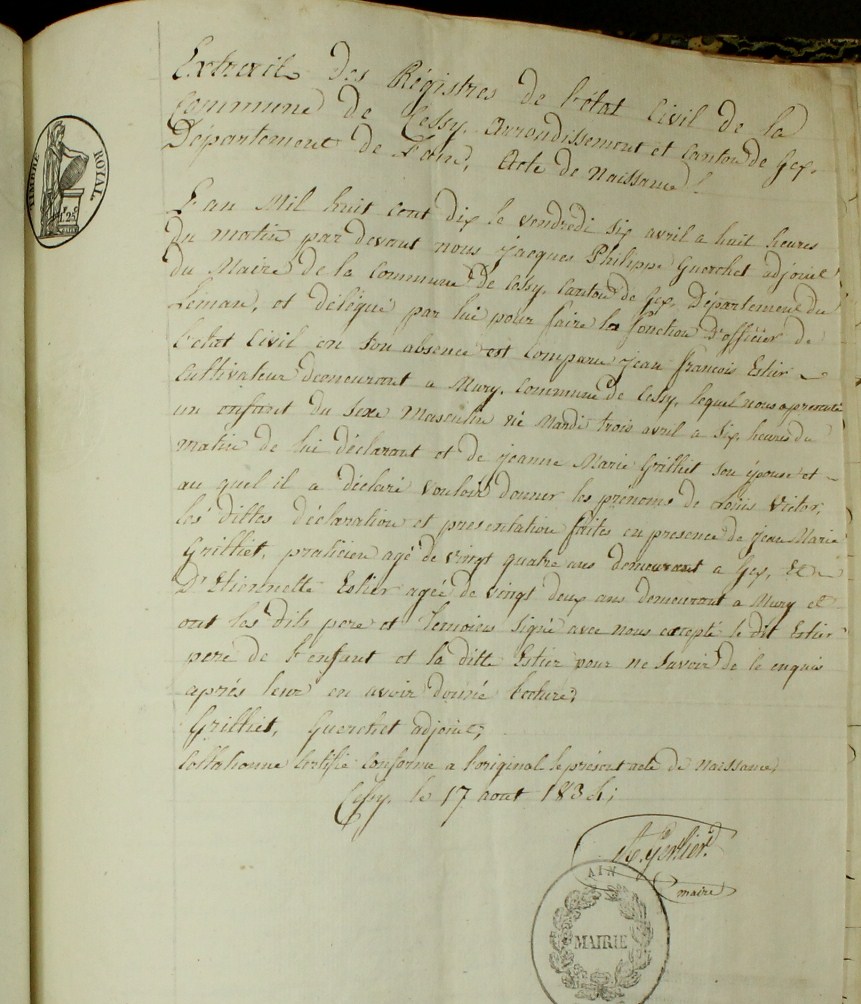 TIMBRE ROYAL
1F 25
Extrait des Régistres de l'état Civil de la
Commune de Cessy, Arrondissement et Canton de Gex,
Departement de l'ain, Acte de Naissance.
L'an Mil huit cent dix le vendredi six avril a huit heures
du matin par devant nous jacques Philippe Guerchet adjoint
du Maire de la Commune de Cessy, Canton de Gex, Département du
Leman, et délégué par lui pour faire la fonction d'officier de
l'etat Civil en son absence est Comparu jean françois Estier
Cultivateur demeurant a Mury, Commune de Cessy, lequel nous a presenté
un enfant du sexe Masculin né Mardi trois avril a six heures du
matin de lui déclarant et de jeanne Marie Grilliet son épouse et
au quel il a déclaré vouloir donner les prénoms de Louis Victor,
les dittes déclaration et présentation faites en presence de jean Marie
Grilliet, praticien agé de vingt quatre ans demeurant a Gex, Et
D' Etiennette Estier agée de vingt deux ans demeurant a Mury et
ont les dits pere et temoins signé avec nous excepté le dit Estier
pere de l'enfant et la ditte Estier pour ne savoir de le enquis
aprés leur en avoir donné lecture;
Grilliet, Guerchet adjoint;
Collationné Certifié Conforme a l'original le présent acte de Naissance,
Cessy, le 17 aout 1834;
maire
AIN
MAIRIE